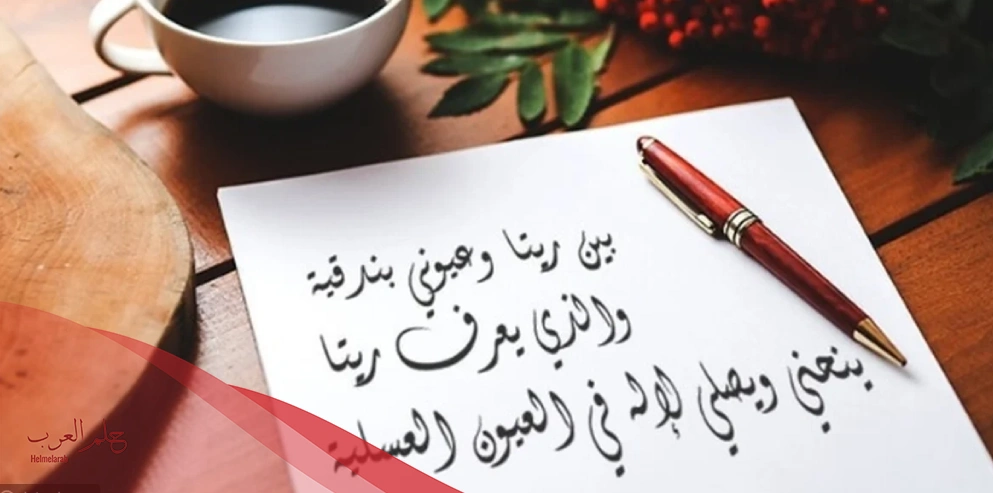 بين ريتا وعيوني بندقية
والذي يعرف ريتا
ينحني ويصلي لإله في العيون العسلية
حلم العرب